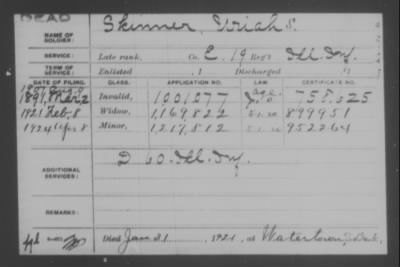 DEAD
NAME OF SOLDIER: Skinner, Uriah S.
SERVICE: Late rank, Co. E, 19 Reg't Ill. Inf.
TERM OF SERVICE: Enlisted , 1 Discharged , 1
DATE OF FILING. CLASS. APPLICATION NO. LAW. CERTIFICATE NO.
1891 Mar 2 Invalid, 1,001,077 758,525
1921 Feb. 8 Widow, 1,169,822 899951
1924 Apr 8 Minor, 1,217,812 952264
ADDITIONAL SERVICES: D 60. Ill. Inf.
REMARKS:
Died Jan. 31, 1921, at Watertown,